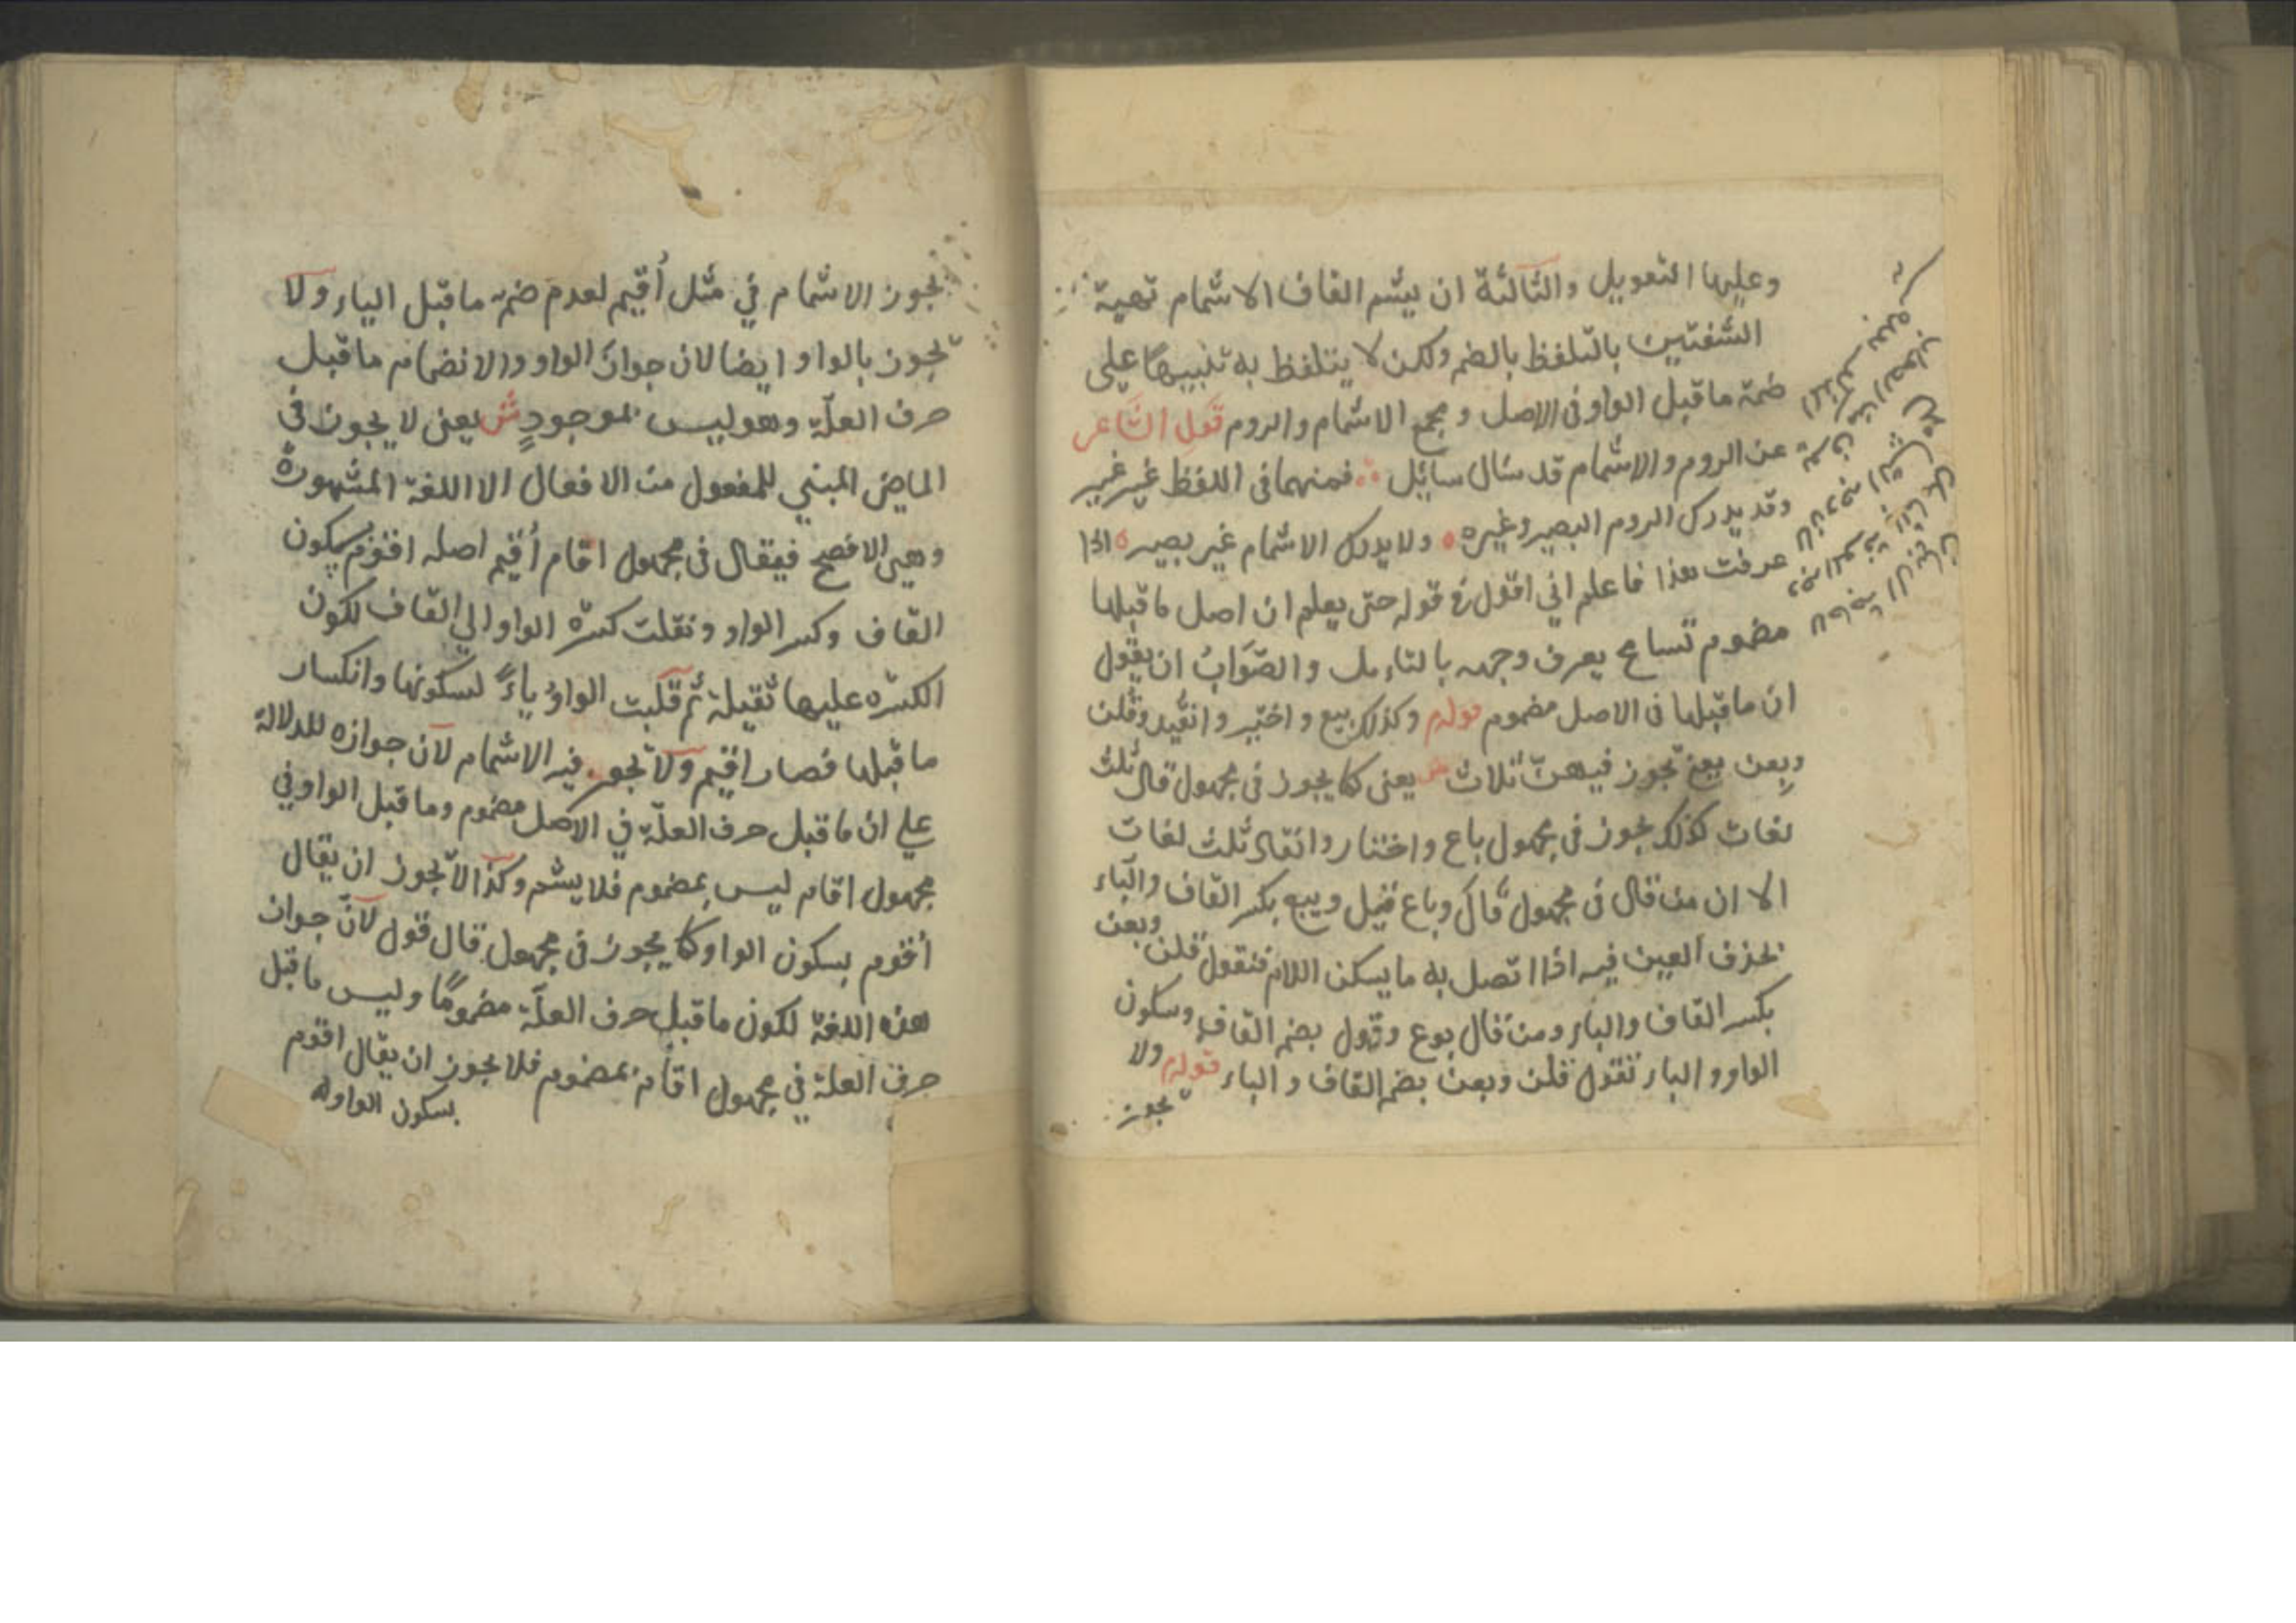 وعليها التعويل والثالثة ان يشم القاف الاشمام تهية
الشفتين بالتلفظ بالضم ولكن لا يتلفظ به تنبيها علي
ضمة ما قبل الواو فى الاصل و يجمع الاشمام والروم قول الشاعر
عن الروم والاشمام قد سال سايل فمنهما فى اللفظ غير غير
وقد يدرك الروم البصير وغيره ولا يدرك الاشمام غير بصير اذا
عرفت هذا فاعلم اني اقول فى قوله حتى يعلم ان اصل ما قبلها
مضموم تسامح يعرف وجهه بالتاءمل والصَّوَابُ ان يقول
ان ما قبلها فى الاصل مضموم قوله وكذلك بيع و اختير و انقيد وقلن
وبعن يعنى تجوز فيهنّ ثلاث ش يعنى كما يجوز فى مجهول قال ثلث
لغات كذلك يجوز فى مجهول باع واختار وانقاد ثلث لغات
الا ان من قال فى مجهول قال وباع قيل وبيع بكسر القاف والباء
بحذف العين فيه اذا اتصل به ما يسكن اللام فنقول قلن وبعن
بكسر القاف والباء ومن قال بوع وقول بضم القاف وسكون
الواو والباء تقول قلن وبعن بضم القاف والباء قوله ولا
يجوز
يجوز الاشمام في مثل أُقيم لعدم ضمة ما قبل الياء ولا
يجوز بالواو ايضا لان جواز الواو والانضمام ما قبل
حرف العلّة وهو ليس بموجودٍ ش يعنى لا يجوز فى
الماضى المبني للمفعول من الافعال الا اللغة المشهورة
وهى الافصح فيقال فى مجهول اقام أُقيم اصله اقوم بسكون
القاف وكسر الواو ونقلت كسرة الواو الي القاف لكون
الكسره عليها ثقيلة ثم قلبت الواوُ ياءً لسكونها وانكسار
ما قبلها فصار اقيم ولا يجوز فيه الاشمام لان جوازه للدلالة
علي ان ما قبل حرف العلّة في الاصل مضموم وما قبل الواو في
مجهول اقام ليس بمضموم فلا يشم وكذا لا يجوز ان يقال
أقوم بسكون الواو كما يجوز فى مجهول قال قول لانّ جواز
هذه اللغة لكون ما قبل حرف العلّة مضمومًا وليس ما قبل
حرف العلة في مجهول اقام بمضموم فلا يجوز ان يقال اقوم
بسكون الواو